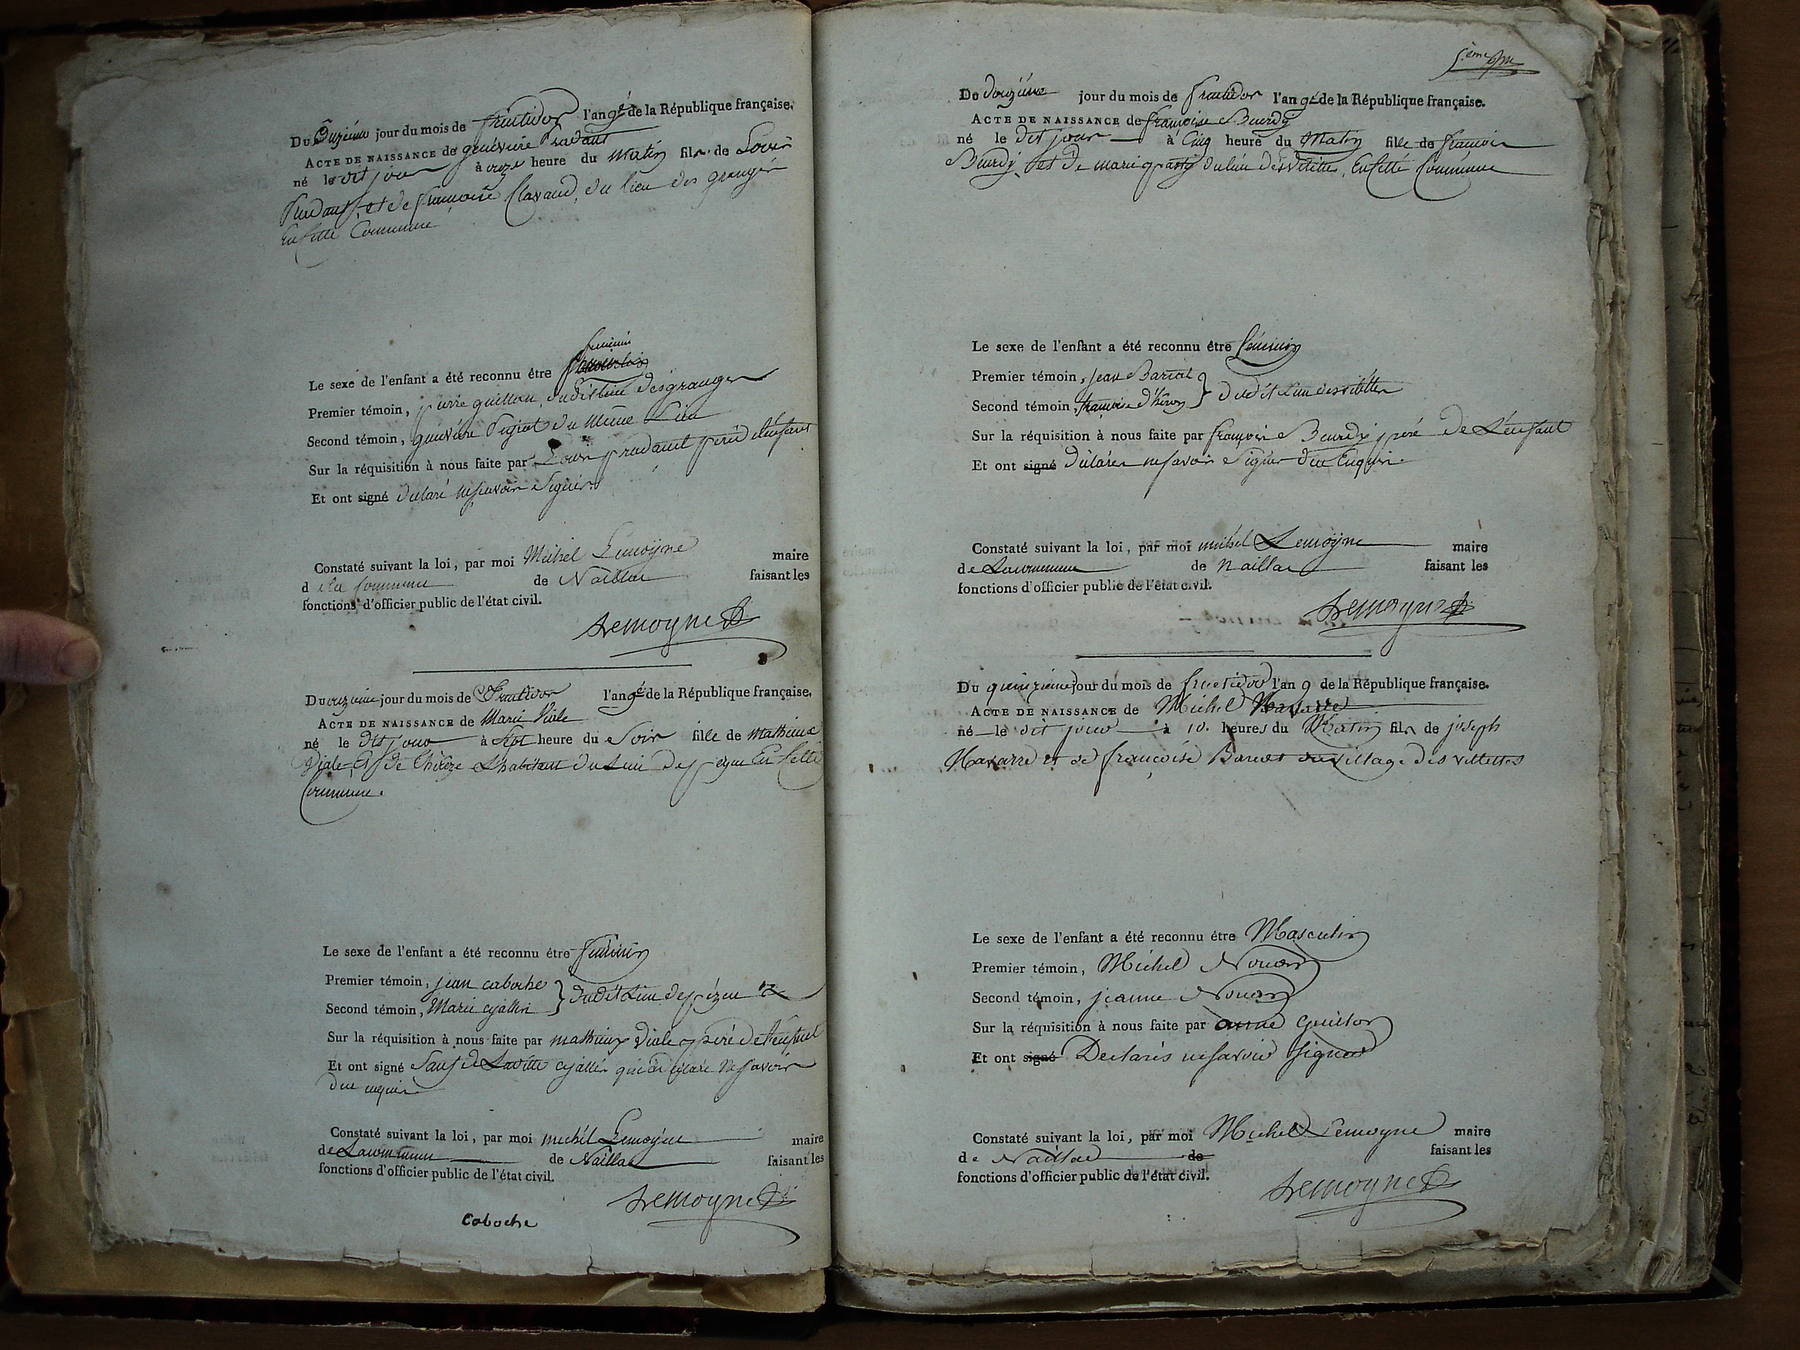 Du Onzieme jour du mois de fructidor l'an 9.e de la République française.
ACTE DE NAISSANCE de genevieve Pradaut
né le dit jour à onze heure du Matin fils de Louis
Pradaut, et de francoise Clavaud, du lieu des granges
En cette Commune
Le sexe de l'enfant a été reconnu être feminin
Premier témoin, pierre guillon, dudit lieu des granges
Second témoin, genevieve du Meme Lieu
Sur la réquisition à nous faite par Louis pradaut pere de lenfant
Et ont signé declaré ne savoir Signer
Constaté suivant la loi, par moi Michel Lemoyne maire
d ela Commune de Naillac faisant les
fonctions d'officier public de l'état civil.
Lemoyne
Du onzieme jour du mois de Fructidor l'an 9.e de la République française.
ACTE DE NAISSANCE de Marie Viale
né le dit jour à Sept heure du Soir fille de Mathieux
Viale, Et de Thereze L'habitant du Lieu de En Cette
Commune.
Le sexe de l'enfant a été reconnu être feminin
Premier témoin, jean caboche
Second témoin, Marie } dudit Lieu de
Sur la réquisition à nous faite par mathieux Viale pere de l'enfant
Et ont signé Sauf qui a declaré ne Savoir
due enquis
Constaté suivant la loi, par moi michel Lemoyne maire
de La commune de Naillac faisant les
fonctions d'officier public de l'état civil.
Lemoyne
Caboche
5.eme
Du douzieme jour du mois de fructidor l'an 9.e de la République française.
ACTE DE NAISSANCE de francoise Beurdy
né le dit jour à Cinq heure du Matin fille de francois
Beurdy, et de marie du lieu des Villettes, En cette Commune
Le sexe de l'enfant a été reconnu être feminin
Premier témoin, jean Bariat
Second témoin, francoise } dudit Lieu des villettes
Sur la réquisition à nous faite par francois Beurdy pere de L'enfant
Et ont signé declarer ne savoir Signer due Enquis
Constaté suivant la loi, par moi michel Lemoyne maire
de La commune de Naillac faisant les
fonctions d'officier public de l'état civil.
Lemoyne
Du quinzieme jour du mois de fructidor l'an 9 de la République française.
ACTE DE NAISSANCE de Michel Navarre
né le dit jour à 10. heures du Matin fils de joseph
Navarre et de francoise du village des villettes
Le sexe de l'enfant a été reconnu être Masculin
Premier témoin, Michel
Second témoin, jeanne
Sur la réquisition à nous faite par anne
Et ont signé Declarés ne savoir signer
Constaté suivant la loi, par moi Michel Lemoyne maire
de Naillac de faisant les
fonctions d'officier public de l'état civil.
Lemoyne